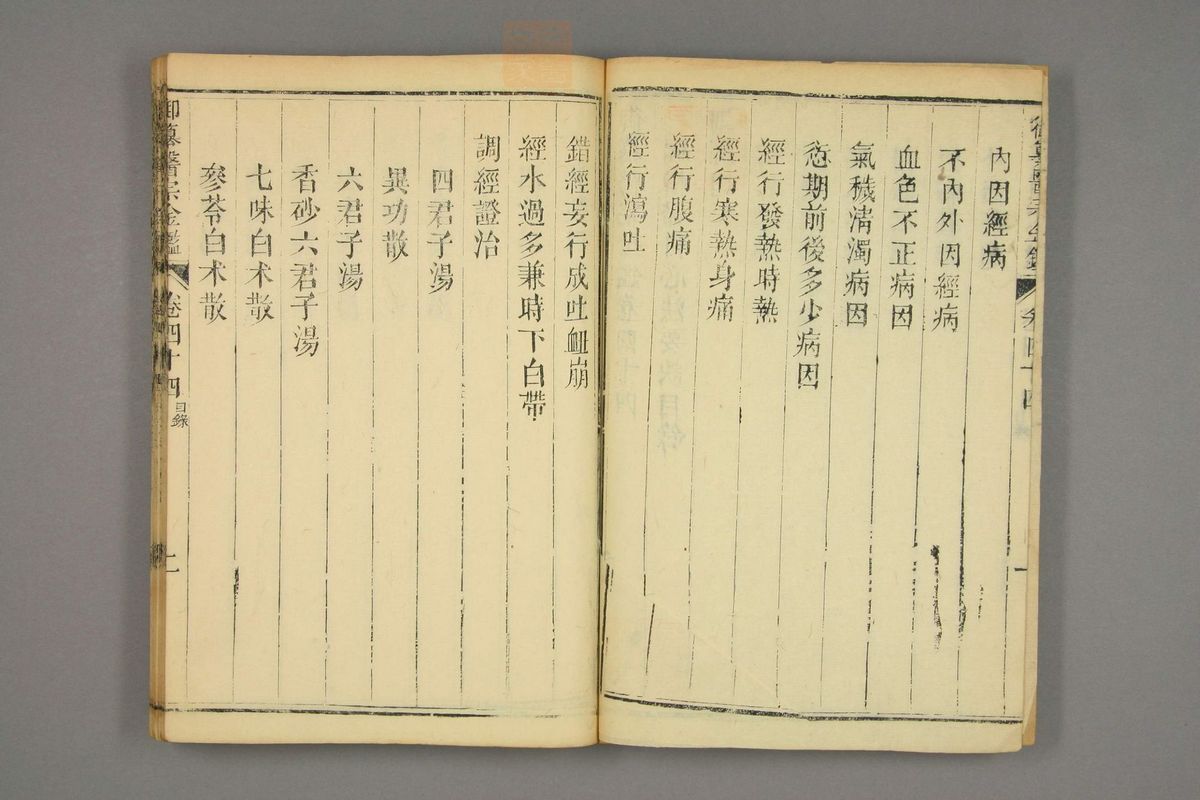 內因經病
不內外因經病
血色不正病因
氣穢清濁病因
愆期前後多少病因
經行發熱時熱
經行寒熱身痛
經行腹痛
經行瀉吐
錯經妄行成吐衄崩
經水過多兼時下白帶
調經證治
四君子湯
異功散
六君子湯
香砂六君子湯
七味白术散
參苓白术散
御纂醫宗金鑑
卷四十四
目錄
二